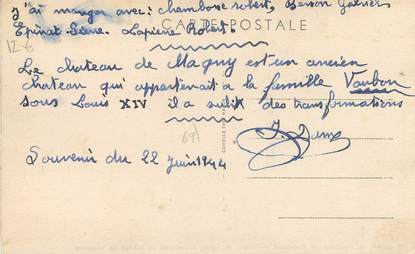 j'ai manger avec: chambon robert, Besson Gabriel
CARTE POSTALE
Epinat Lapierre Robert.
12 €
Le chateau de Magny est un ancien
chateau qui appartenait a la famille Vauban
sous Louis XIV il a subit des transformations
89
J. Dume
Souvenir du 22 Juin 1944